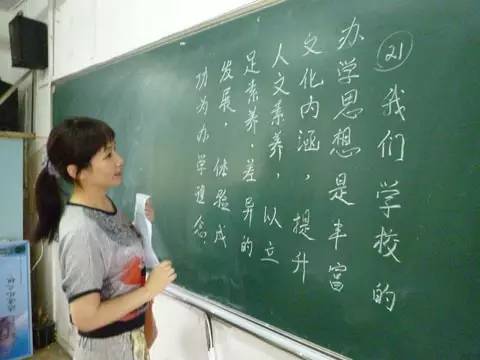 ㉑我们学校的
办学思想是丰富
文化内涵，提升
人文素养，以立
足素养，差异的
发展，体验成
功为办学理念。